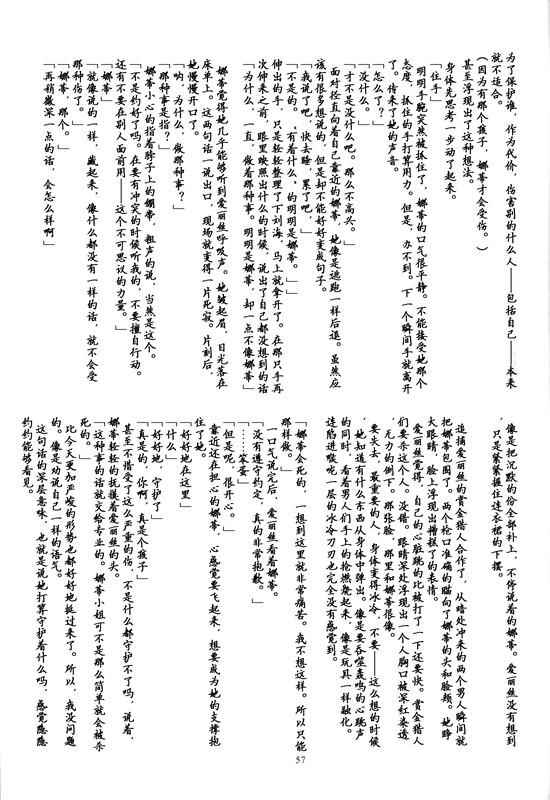 为了保护谁，作为代价，伤害别的什么人——包括自己——本来
就不适合。
（因为有那个孩子，娜蒂才会受伤。）
甚至浮现出了这种想法。
身体先思考一步动了起来。
「住手」
明明手腕突然被抓住了，娜蒂的口气很平静。不能接受她那个
态度，抓住的手打算用力。但是，办不到。下一个瞬间手就离开
了。传来了她的声音。
「怎么了？」
「没什么。」
「才不是没什么吧。那么不高兴。」
面对径直向着自己靠近的娜蒂，她像是逃跑一样后退。虽然应
该有很多想说的，但是却不能好好变成句子。
「我说了吧，快去睡，累了吧。」
「不是的。有着什么，的明明是娜蒂。」
伸出的手，只是轻轻整理了下刘海，马上就拿开了。在那只手再
次伸来之前，眼里映照出什么的时候，说出了自己都没想到的话
「为什么，一直，做着那种事。明明是娜蒂，却一点不像娜蒂」
娜蒂觉得她几乎能够听到爱丽丝呼吸声。她皱起眉，目光落在
床单上。这两句话一说出口，现场就变得一片死寂。片刻后，
她慢慢开口了。
「呐，为什么，做那种事？」
「那种事是指？」
娜蒂小心的指着脖子上的绷带，粗声的说，当然是这个。
「不是约好了吗。在要有冲突的时候听我的，不要擅自行动。
还有不要在别人面前用——这个不可思议的力量。」
「娜蒂」
「就像说的一样，藏起来，像什么都没有一样的话，就不会受
那种伤了。」
「娜蒂，那个。」
「再稍微深一点的话，会怎么样啊」
像是把沉默的份全部补上，不停说着的娜蒂。爱丽丝没有想到
，只是紧紧握住连衣裙的下摆。
追捕爱丽丝的赏金猎人合作了，从暗处冲来的两个男人瞬间就
把娜蒂包围了。两个枪口准确的瞄向了娜蒂的头和脸颊。她睁
大眼睛，脸上浮现出糟糕了的表情。
爱丽丝觉得，自己的心脏跳的比被打了一下还要快。赏金猎人
们要杀这个人。没错。眼睛深处浮现出一个人胸口被深红染透
，无力的倒下。那张脸，那里和娜蒂很像。
要失去，最重要的人，身体变得冰冷，不要——这么想的时候
，她知道有什么东西从身体中弹出。像是要吞噬轰鸣的心跳声
的同时，看着男人们手上的枪燃烧起来，像是玩具一样融化。
连陷进喉咙一层的冰冷刀刃也完全没有感觉到。
「娜蒂会死的，一想到这里就非常痛苦。我不想这样。所以只能
那样做。」
一口气说完后，爱丽丝看着娜蒂。
「没有遵守约定，真的非常抱歉。」
「……笨蛋」
「但是呢，很开心。」
靠近还在担心的娜蒂，心感觉要飞起来，想要成为她的支撑抱
住了她。
「好好地在这里」
「什么」
「好好地，守护了」
「真是的，你啊，真是个孩子」
甚至不惜受了这么严重的伤，不是什么都守护不了吗，说着，
娜蒂轻轻的抚摸着爱丽丝的头。
「这种事的话就交给专业的。娜蒂小姐可不是那么简单就会被杀
死的。」
比今天更加严峻的形势也都好好地挺过来了。所以，我没问题
的，像是劝说自己一样的语气。
这句话的深层意味，也就是说她打算守护着什么吗，感觉隐隐
约约能够看见。
57